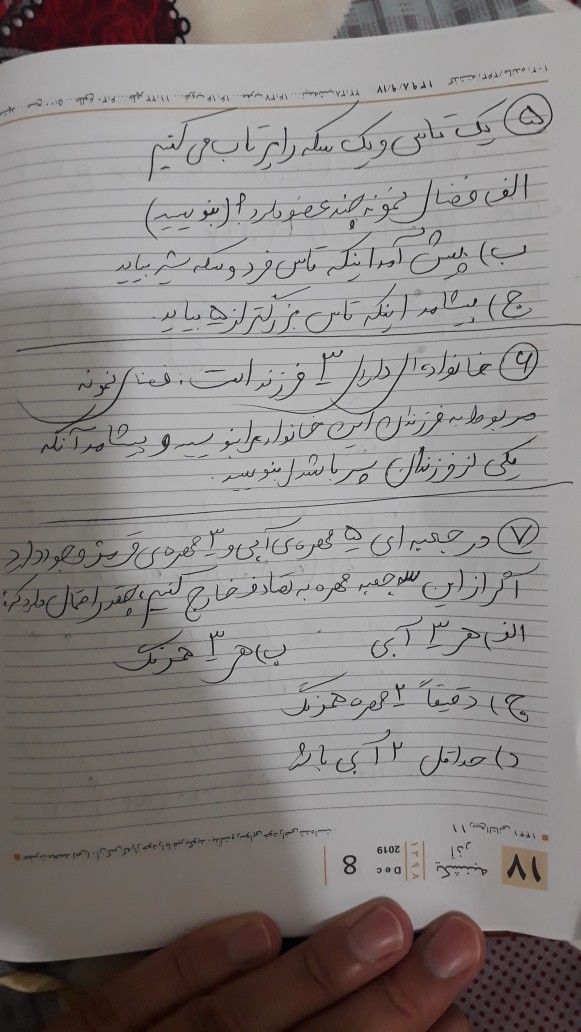 ۵ یک تاس و یک سکه را پرتاب می کنیم
الف) فضای نمونه چند عضو دارد؟ (بنویسید)
ب) پیش آمد اینکه تاس فرد و سکه شیر بیاید
ج) پیشامد اینکه تاس بزرگتر از ۵ بیاید.
۶ خانواده ای دارای ۳ فرزند است، فضای نمونه
مربوط به فرزندان این خانواده را بنویسید و پیشامد آنکه
یکی از فرزندان پسر باشد را بنویسید.
۷ در جعبه ای ۵ مهره ی آبی و ۳ مهره ی قرمز وجود دارد
اگر از این جعبه مهره به تصادف خارج کنیم، چقدر احتمال دارد که:
الف) هر ۳ آبی ب) هر ۳ همرنگ
ج) دقیقاً ۲ مهره همرنگ
د) حداقل ۲ آبی باشد
۱۷ آذر یکشنبه
۱۳۹۸
Dec 2019 8
۱۱ ربیع الثانی ۱۴۴۱